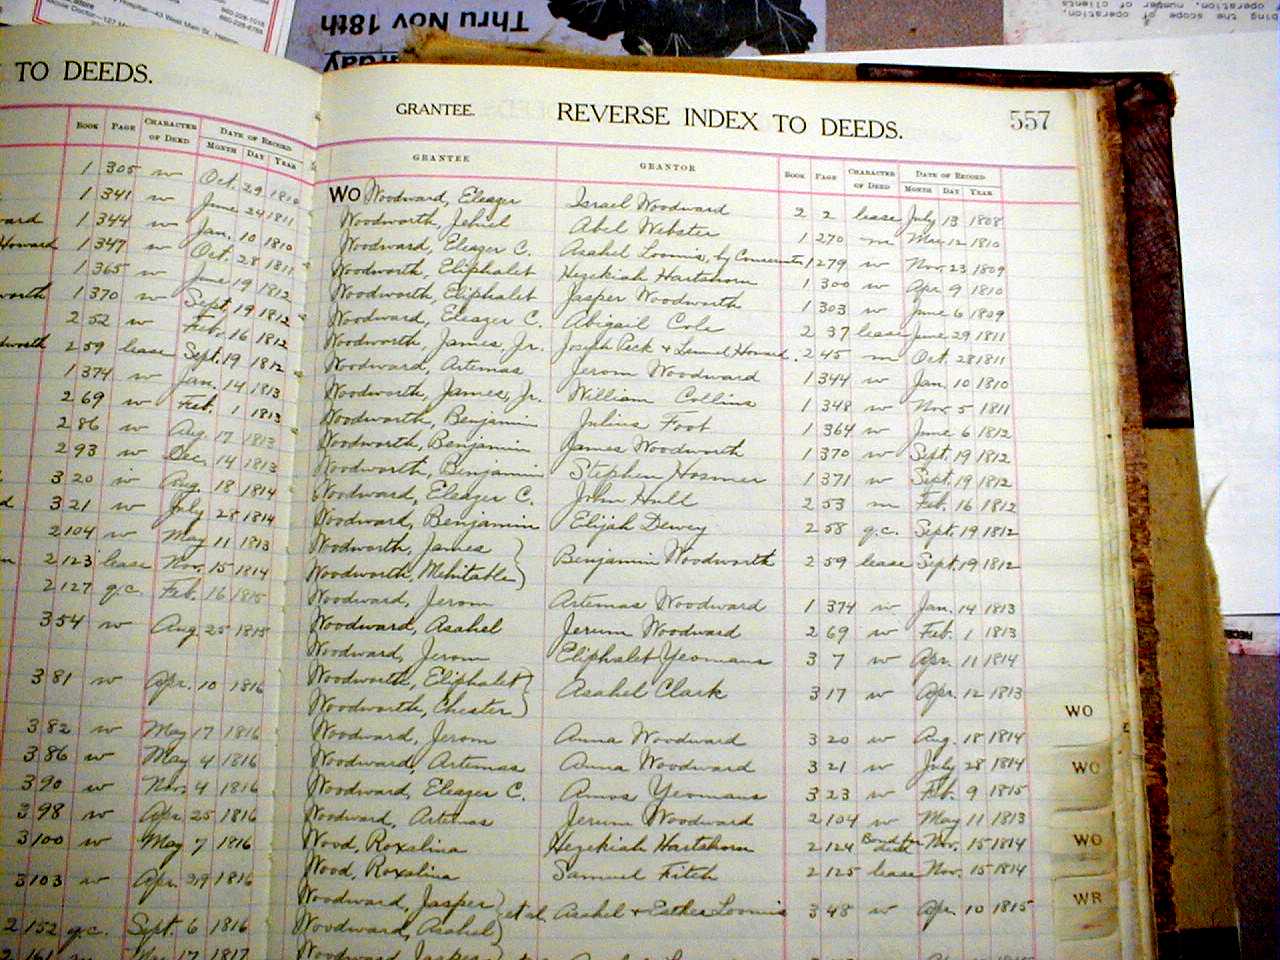 Thru Nov 18th
TO DEEDS.
BOOK PAGE CHARACTER OF DEED DATE OF RECORD
MONTH DAY YEAR
1 305 w Oct. 29 1810
1 341 w June 24 1811
1 344 w Jan. 10 1810
Howard 1 347 w Oct. 28 1811
1 365 w June 19 1812
1 370 w Sept. 19 1812
2 52 w Feb. 16 1812
2 59 lease Sept. 19 1812
1 374 w Jan. 14 1813
2 69 w Feb. 1 1813
2 86 w Aug. 17 1813
2 93 w Dec. 14 1813
3 20 w Aug. 18 1814
3 21 w July 28 1814
2 104 w May 11 1813
2 123 lease Nov. 15 1814
2 127 q.c. Feb. 16 1815
3 54 w Aug 25 1815
3 81 w Apr. 10 1816
3 82 w May 17 1816
3 86 w May 4 1816
3 90 w Nov. 4 1816
3 98 w Apr 25 1816
3 100 w May 7 1816
3 103 w Apr. 29 1816
2 152 q.c. Sept. 6 1816
2 161
GRANTEE. REVERSE INDEX TO DEEDS. 557
GRANTEE GRANTOR BOOK PAGE CHARACTER OF DEED DATE OF RECORD
MONTH DAY YEAR
WO Woodward, Eleazer Israel Woodward 2 2 lease July 13 1808
Woodworth, Jehiel Abel Webster 1 270 m Mar. 12 1810
Woodward, Eleazer C. Asahel Loomis, by Conservator 1 279 w Nov. 23 1809
Woodworth, Eliphalet Hezekiah Hartshorn 1 300 w Apr. 9 1810
Woodworth, Eliphalet Jasper Woodworth 1 303 w June 6 1809
Woodward, Eleazer C. Abigail Cole 2 37 lease June 29 1811
Woodworth, James, Jr. Joseph Peck + Lemuel Howard. 2 45 m Oct. 28 1811
Woodward, Artemas Jerom Woodward 1 344 w Jan. 10 1810
Woodworth, James, Jr. William Collins 1 348 w Nov. 5 1811
Woodworth, Benjamin Julius Foot 1 364 w June 6 1812
Woodworth, Benjamin James Woodworth 1 370 w Sept. 19 1812
Woodworth, Benjamin Stephen Hosmer 1 371 w Sept. 19 1812
Woodward, Eleazer C. John Huld 2 53 m Feb. 16 1812
Woodward, Benjamin Elijah Dewey 2 58 q.c. Sept. 19 1812
Woodworth, James
Woodworth, Mehitable } Benjamin Woodworth 2 59 lease Sept. 19 1812
Woodward, Jerom Artemas Woodward 1 374 w Jan. 14 1813
Woodward, Asahel Jerum Woodward 2 69 w Feb. 1 1813
Woodward, Jerom Eliphalet Yeomans 3 7 w Apr. 11 1814
Woodworth, Eliphalet
Woodworth, Chester } Asahel Clark 3 17 w Apr. 12 1813
Woodward, Jerom Anna Woodward 3 20 w Aug. 18 1814
Woodward, Artemas Anna Woodward 3 21 w July 28 1814
Woodward, Eleazer C. Amos Yeomans 3 23 w Feb. 9 1815
Woodward, Artemas Jerum Woodward 2 104 w May 11 1813
Wood, Roxalina Hezekiah Hartshorn 2 124 Bond for Nov. 15 1814
Wood, Roxalina Samuel Fitch 2 125 lease Nov. 15 1814
Woodward, Jasper } et al Asahel + Esther Loomis 3 48 w Apr. 10 1815
Woodward, Asahel
Woodward, Jasper
WO
WO
WO
WR